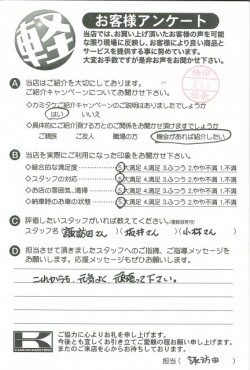 軽
お客様アンケート
当店では、お買い上げ頂いたお客様の声を可能
な限り現場に反映し、お客様により良い商品と
サービスを提供する事に努めています。
大変お手数ですが是非お声をお聞かせ下さい。
A 当店はご紹介を大切にしてあります。
ご紹介キャンペーンについてお聞かせ下さい。
◇カミタケご紹介キャンペーンのご説明はありましたでしょうか
はい いいえ
◇具体的にご紹介頂ける方とのご関係をお聞かせ頂けますでしょうか
ご親族 ご友人 職場の方 機会があれば紹介したい
B 当店を実際にご利用になった印象をお聞かせ下さい。
◇総合的な満足度 5.大満足 4.満足 3.ふつう 2.やや不満 1.不満
◇スタッフの対応 5.大満足 4.満足 3.ふつう 2.やや不満 1.不満
◇お店の雰囲気、清掃 5.大満足 4.満足 3.ふつう 2.やや不満 1.不満
◇納車時のお車の状態 5.大満足 4.満足 3.ふつう 2.やや不満 1.不満
C 評価したいスタッフがいれば教えてください。(複数回答可)
スタッフ名(諏訪田さん)(坂井さん)(小林さん)
D 担当させて頂きましたスタッフへのご指摘、ご指導メッセージを
お願いします。応援メッセージもぜひお願いします。
これからも、元気よく、頑張って下さい。
K
ご協力に心よりお礼を申し上げます。
今後とも宜しくお引き立てご愛顧の程お願い申し上げます。
またのご来店を心からお待ちしております。
担当(諏訪田)